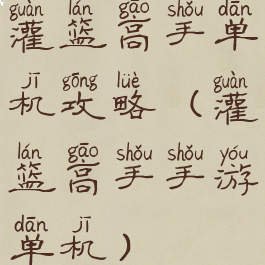 guàn lán gāo shǒu dān
灌篮高手单
jī gōng lüè guàn
机攻略（灌
lán gāo shǒu shǒu yóu
篮高手手游
dān jī
单机）